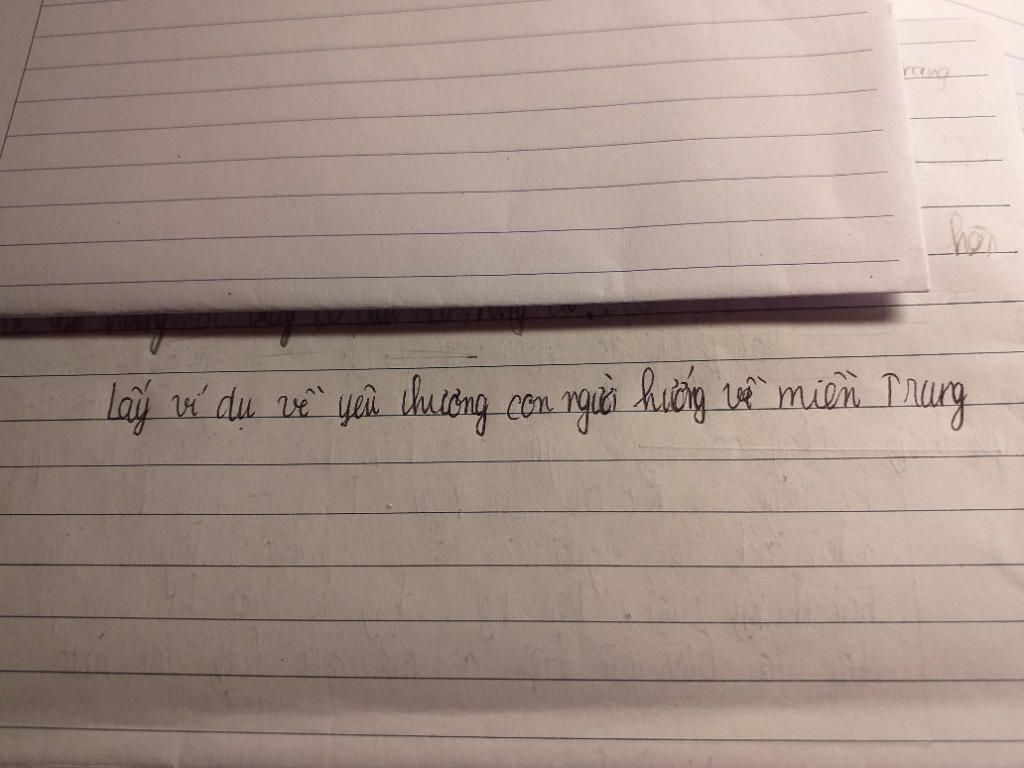 rang
hơn
Lấy ví dụ về yêu thương con người hướng về miền Trung